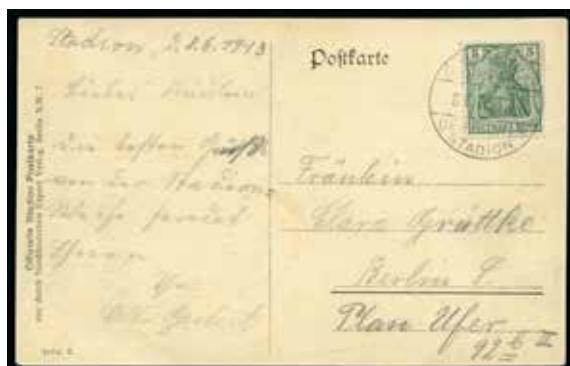 Stadion, 2.8.6.1913
Liebes Fräulein
die besten Grüße
von der Stadion=
Weihe sendet
Ihnen
Otto
Offizielle Stadion Postkarte
Postkarte
5 5
STADION
Fräulein
Clara Grüttke
Berlin S
Plan Ufer
92 b II